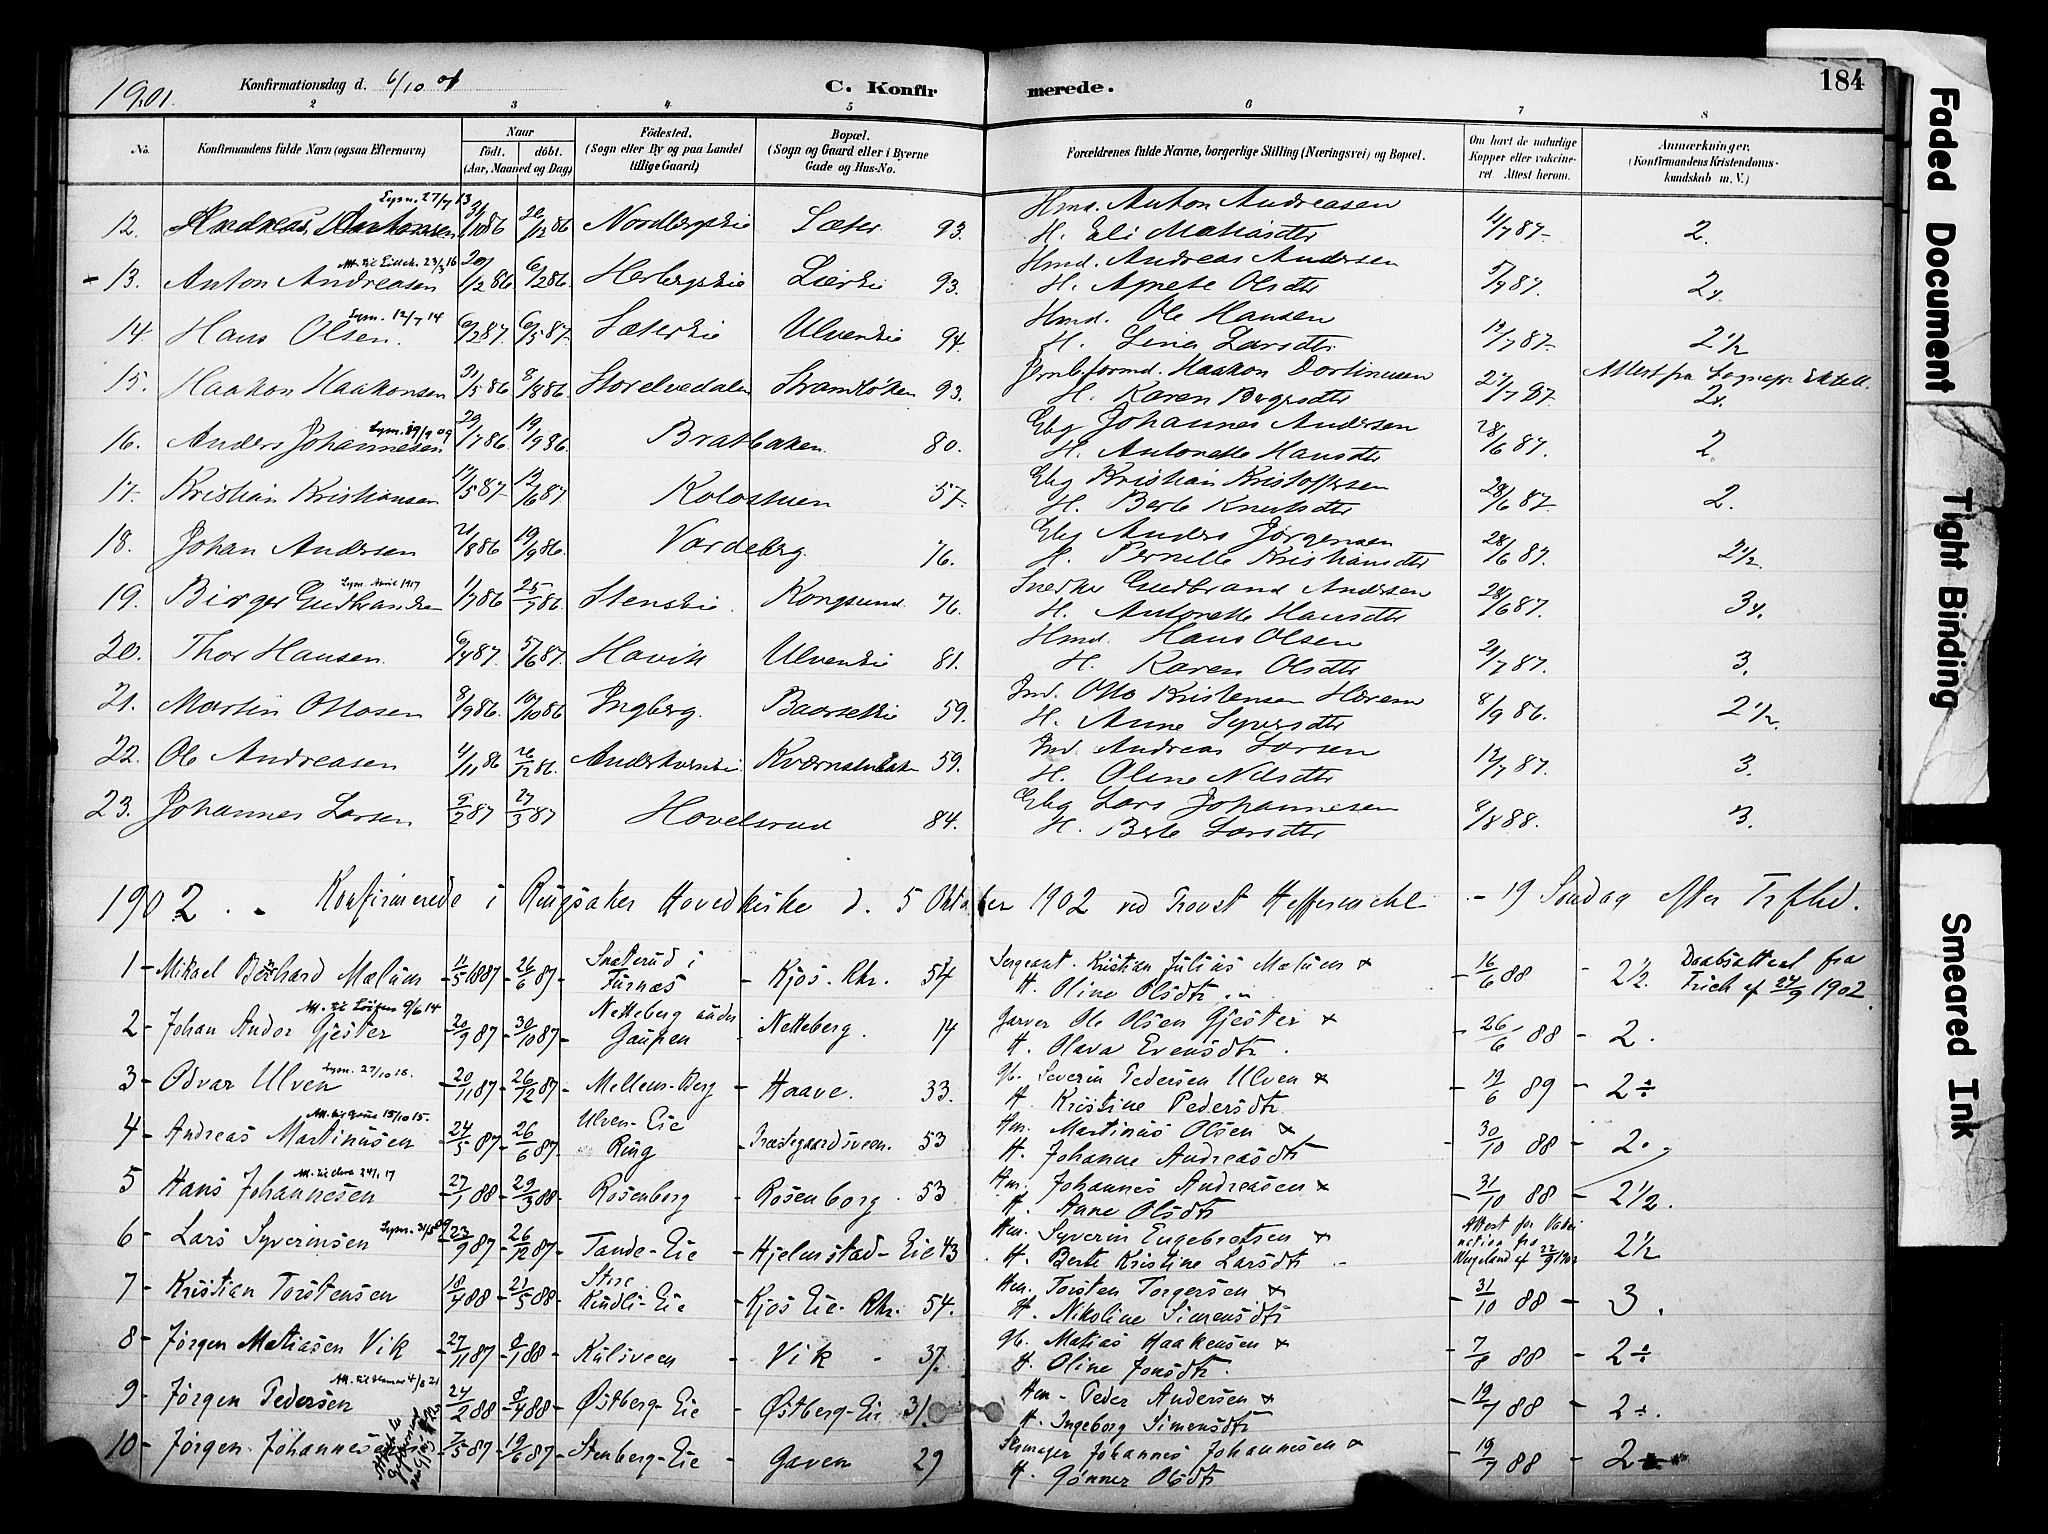 1901. Konfirmationsdag d. 6/10 01 C. Konfirmerede. 184
2 3 4 5 6 7 8
No. Konfirmandens fulde Navn (ogsaa Efternavn) Naar födt. döbt. (Aar, Maaned og Dag) Födested. (Sogn eller By og paa Landet tillige Gaard) Bopæl. (Sogn og Gaard eller i Byerne Gade og Hus-No. Forældrenes fulde Navne, borgerlige Stilling (Næringsvei) og Bopæl. Om havt de naturlige Kopper eller vaccineret. Attest herom. Anmærkninger. (Konfirmandens Kristendomskundskab m. V.)
Lysn. 27/7 13
12. Andreas Antonsen 31/10 86 26/12 86 Nordbergseie Sæter 93. Hmd. Anton Andreasen H. Eli Matiasdtr 11/7 87 2.
13. Anton Andreasen 20/2 86 Herbergseie Lierseie 93. Hmd. Andreas Andersen H. Agnete Olsdtr 5/7 87. 2
Lysn. 12/7 14
14. Hans Olsen. 6/2 87 6/3 87 Sætereie Ulveneie 94. Hmd. Ole Hansen H. Lina Larsdtr 12/7 87 2 1/2
15. Haakon Haakonsen 31/5 86 8/8 86 Storelvedalen Strandløken 93. Haakon Dortinusen H. Karen Bergersdtr Attest fra 2
Lysn. 09
16. Anders Johannesen 20/7 86 19/9 86 Bratbaken 80. Gbg Johannes Andersen H. Antonette Hansdtr 28/6 87. 2.
17. Kristian Kristiansen 14/5 87 12/6 87 Kolostuen 57. Gbg Kristian Kristoffersen H. Berte Knutsdtr 28/6 87. 2.
18. Johan Andersen 21/8 86 19/9 86 Vardeberg. 76. Gbg Anders Jørgensen H. Pernille Kristiansdtr 28/6 87. 2 1/2.
Lysn. April 1917
19. Birger Gudbrandsen 1/7 86 25/7 86. Stenseie Kongsund. 76. Snedker Gudbrand Andersen H. Antonette Hansdtr 28/6 87. 3
20. Thor Hansen. 6/4 87. 5/6 87. Havik Ulveneie 81. Hmd. Hans Olsen H. Karen Olsdtr 21/7 87. 3.
21. Martin Ottosen 8/9 86. 10/10 86 Ingberg. Baarseteie 59. Ind. Otto Kristensen H. Anne Syversdtr 8/9 86. 2 1/2.
22. Ole Andreasen 11/11 86 26/12 86. 59. Ind. Andreas Larsen H. Oline Nilsdtr 12/7 87. 3.
23. Johannes Larsen 9/2 87 27/3 87 Hovelsrud 84. Gbg Lars Johannesen H. Berte Larsdtr 9/8 88. 3.
1902. Konfirmerede i Ringsaker Hovedkirke d. 5 Oktober 1902 ved Provst Heffermehl - 19 Søndag efter Trfthd.
1 - Mikael Bernhard Mælum 11/5 1887 26/6 87 Snaterud i Furnæs Kjos. Rhr. 54 Sergeant. Kristian Julius Mælum H. Oline Olsdtr. 16/6 88 2 1/2. Daabsattest fra Trich af 24/9 1902
Att. til Löiten 9/6 14
2 - Johan Andor Gjester 20/9 87 30/10 87 Netteberg under Gaupen Netteberg. 14 Garver Ole Olsen Gjester H. Olava Evensdtr. 26/6 88 2.
Lysn. 27/10 16.
3 - Odvar Ulven 20/11 87 26/12 87 Mellem-Berg Haave. 33. Gb. Severin Pedersen Ulven H. Kristine Pedersdtr. 12/6 89 2 ÷
15/10 15.
4 - Andreas Martinusen 24/5 87 26/6 87 Ulven-Eie Ring Præstegaardsveen. 53 Hm. Martinus Olsen H. Johanne Andreasdtr 30/10 88 2.
24/1 17
5 Hans Johannesen 27/1 88 29/3 88 Rosenborg Rosenborg. 53 Hm. Johannes Andreasen H. Anne Olsdtr 31/10 88 2 1/2.
Lysn. 31/5 09
6 - Lars Syverinsen 23/9 87 26/12 87 Tande-Eie Hjelmstad-Eie 43 Hm. Syverin Engebretsen H. Berte Kristine Larsdtr Attest for Vaccination fra Wergeland af 22/9 1902 2 1/2
7 - Kristian Torstensen 18/4 88 21/5 88 Store Kindli-Eie Kjos Eie. Rhr. 54. Hm. Torsten Torgersen H. Nikoline Simensdtr 31/10 88 3.
8 - Jørgen Matiasen Vik 27/11 87 8/1 88 Kulsveen Vik 37. Gb. Matias Haakensen H. Oline Jonsdtr. 7/8 88 2 ÷
Att. til Hamar 4/8 21
9 - Jørgen Pedersen 24/2 88 8/4 88 Østberg-Eie Østberg-Eie 31. Hm - Peder Andersen H. Ingeborg Simensdtr 12/7 88 2 ÷.
10 - Jørgen Johannesen 7/5 87 19/6 87 Stenberg-Eie Gaven 29 Skomager Johannes Johannesen H. Gønner Olsdtr 19/7 88 2
Faded Document
Tight Binding
Smeared Ink